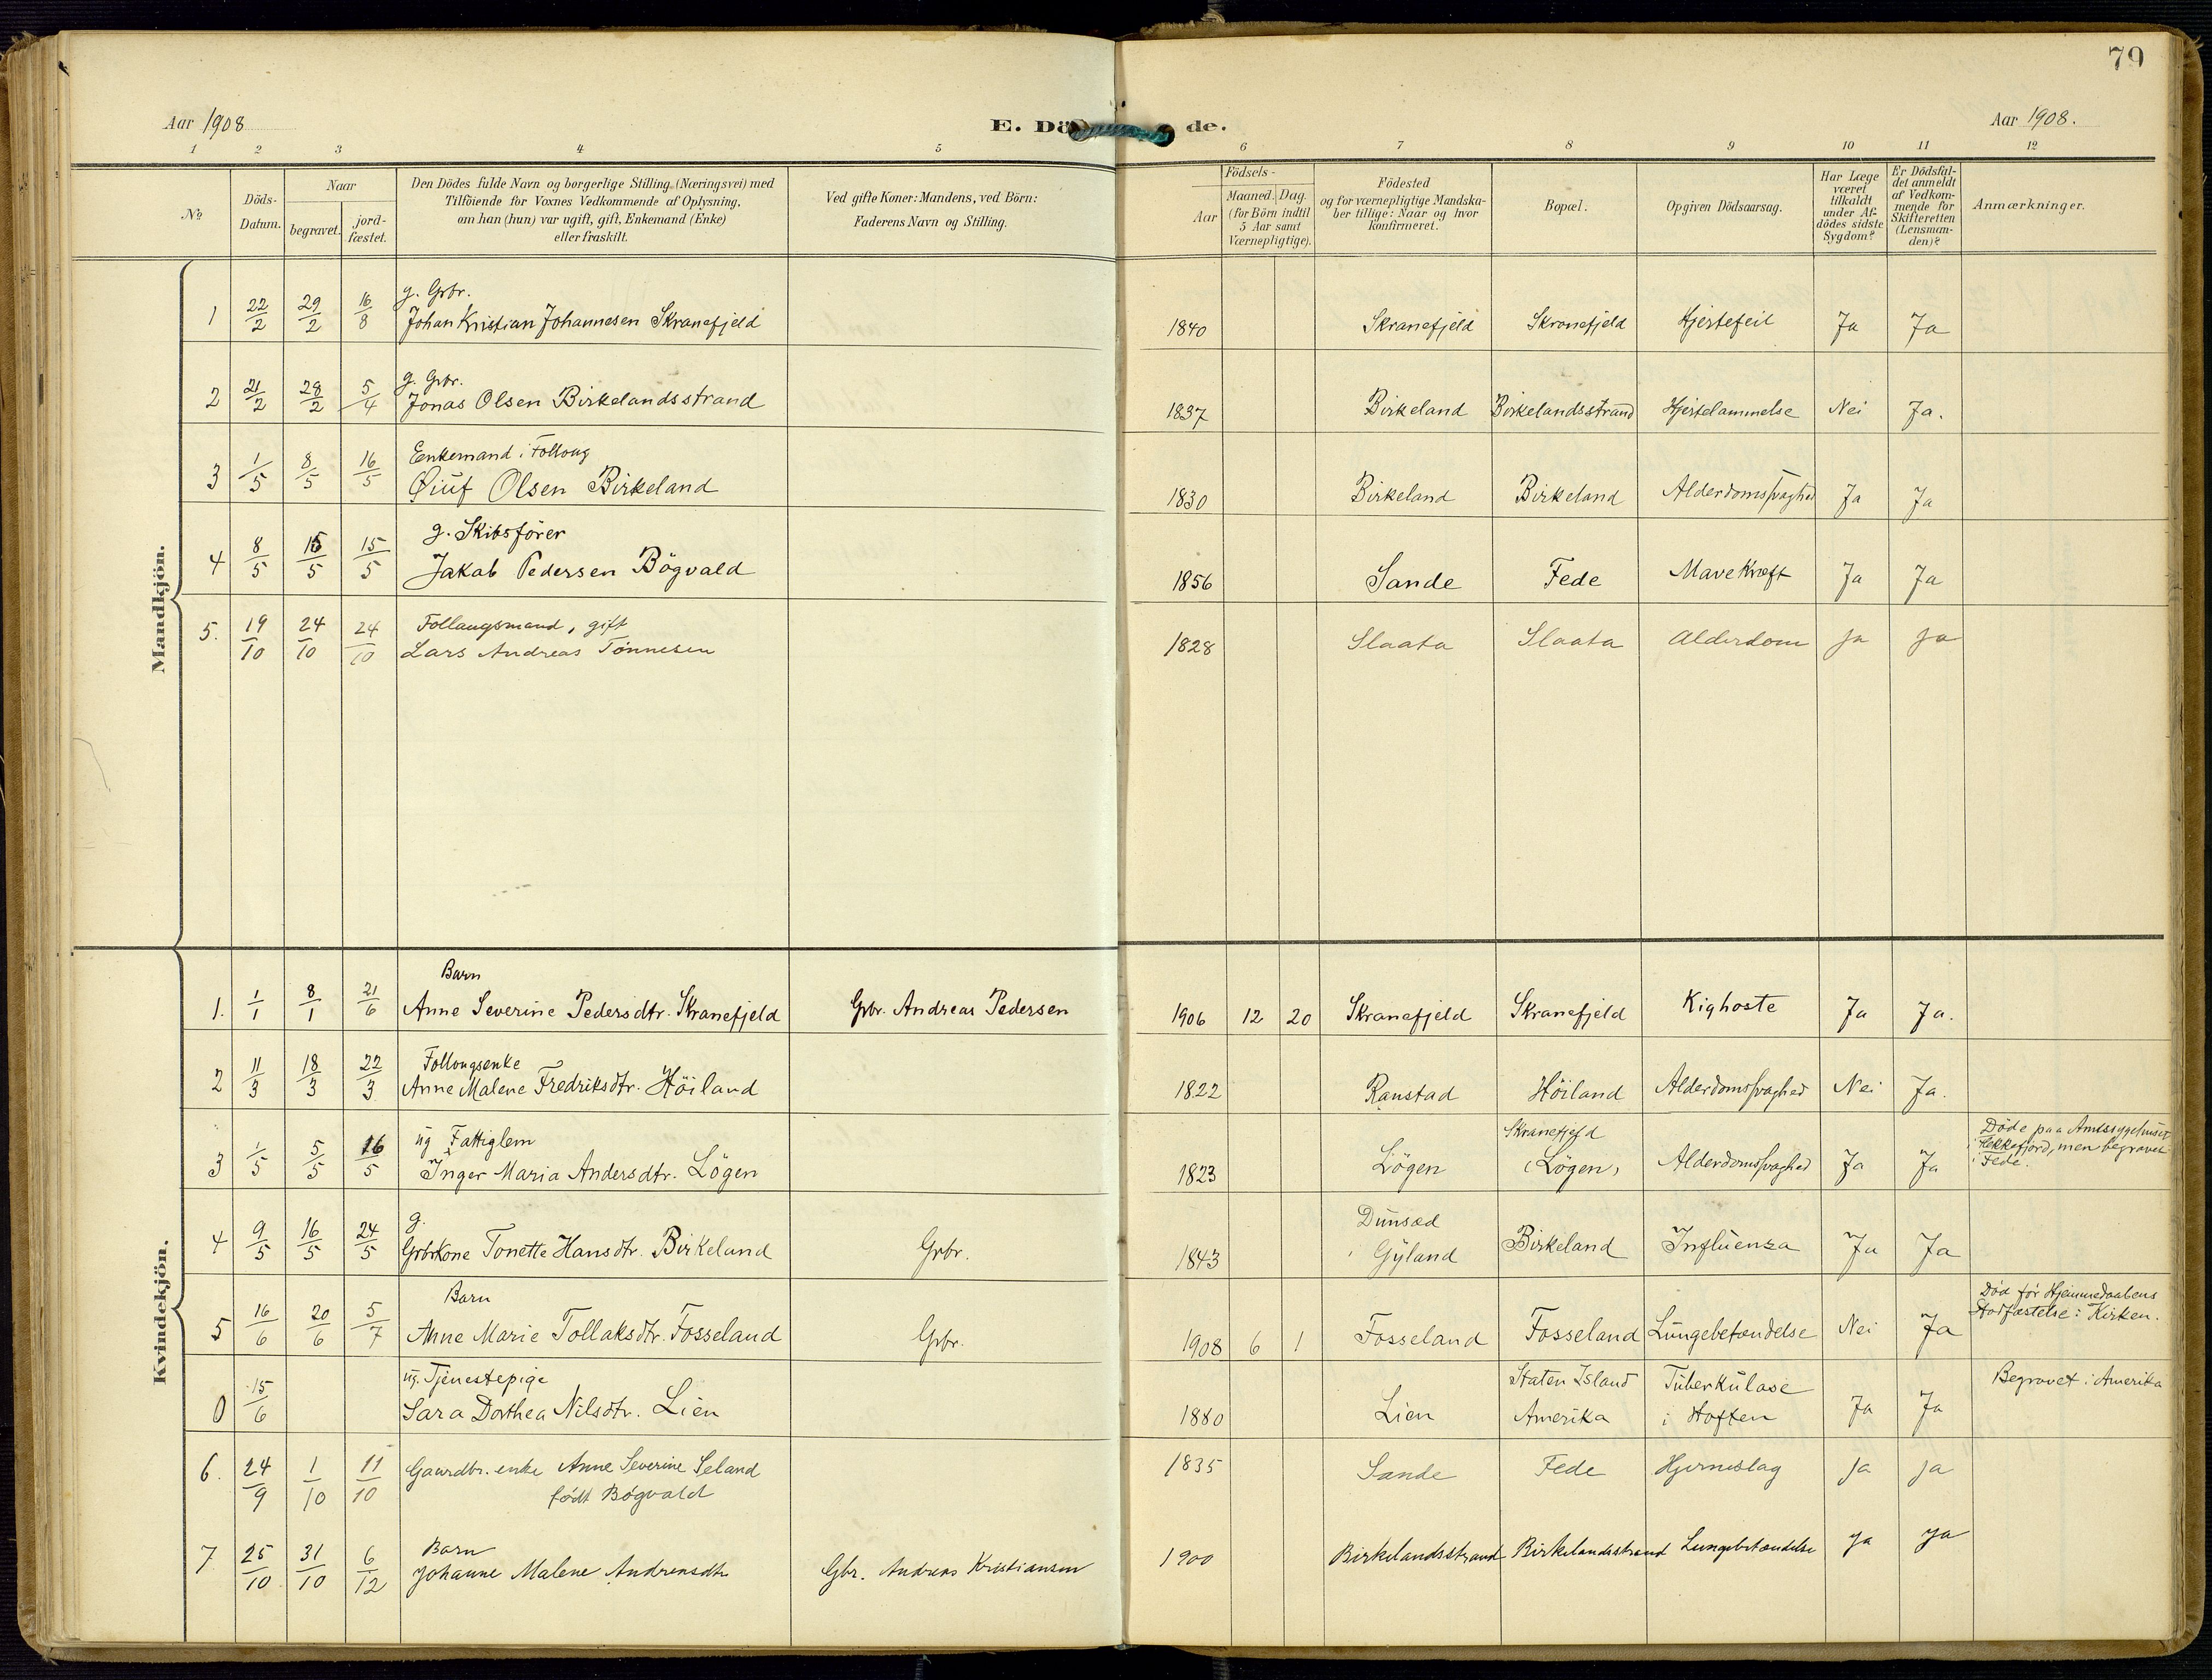 79
Aar 1908
E. Dö de.
Aar 1908.
1 2 3 4 5 6 7 8 9 10 11 12
No
Döds-
Datum.
Naar
begravet.
jord-
fæstet.
Den Dödes fulde Navn og borgerlige Stilling (Næringsvei) med
Tilföiende for Voxnes Vedkommende af Oplysning,
om han (hun) var ugift, gift, Enkemand (Enke)
eller fraskilt.
Ved gifte Koner: Mandens, ved Börn:
Faderens Navn og Stilling.
Födsels-
Aar
Maaned. Dag.
(for Börn indtil
5 Aar samt
Værnepligtige).
Födested
og for værnepligtige Mandska-
ber tillige: Naar og hvor
konfirmeret.
Bopæl.
Opgiven Dödsaarsag.
Har Læge
været
tilkaldt
under Af-
dödes sidste
Sygdom?
Er Dödsfal-
det anmeldt
af Vedkom-
mende for
Skifteretten
(Lensman-
den)?
Anmærkninger.
Mandkjön.
g. Grbr.
1 22/2 29/2 16/8 Johan Kristian Johannesen Skranefjeld 1840 Skranefjeld Skranefjeld Hjertefeil Ja Ja
g. Grbr.
2 21/2 28/2 5/4 Jonas Olsen Birkelandsstrand 1837 Birkeland Birkelandsstrand Hjertelammelse Nei Ja.
Enkemand i Folloug
3 1/5 8/5 16/5 Olsen Birkeland 1830 Birkeland Birkeland Alderdomssvaghed Ja Ja
g. Skibsförer
4 8/5 15/5 15/5 Jakob Pedersen Bögvald 1856 Sande Fede Mavekræft Ja Ja
Follaugsmand, gift
5. 19/10 24/10 24/10 Lars Andreas Tönnesen 1828 Slaata Slaata Alderdom Ja Ja
Kvindekjön.
Barn
1. 1/1 8/1 21/6 Anne Severine Pedersdtr. Skranefjeld Grbr. Andreas Pedersen 1906 12 20 Skranefjeld Skranefjeld Kighoste Ja Ja.
Follougsenke
2 11/3 18/3 22/3 Anne Malene Fredriksdtr. Höiland 1822 Ranstad Höiland Alderdomssvaghed Nei Ja.
ug Fattiglem Skranefjeld Döde paa Amtssygehuset
3 1/5 5/5 16/5 Inger Maria Andersdtr. Lögen 1823 Lögen (Lögen) Alderdomssvaghed Ja Ja i Flekkefjord, men begravet
i Fede.
g. Dunsæd
4 9/5 16/5 24/5 GrbrKone Tonette Hansdtr. Birkeland Grbr. 1843 i Gyland Birkeland Influenza Ja Ja
Barn Död för Hjemmedaabens
5 16/6 20/6 5/7 Anne Marie Tollaksdtr. Fosseland Grbr. 1908 6 1 Fosseland Fosseland Lungebetændelse Nei Ja Stadfæstelse i Kirken.
ug. Tjenestepige Staten Island Tuberkulose Begravet i Amerika
0 15/6 Sara Dorthea Nilsdtr. Lien 1880 Lien Amerika i Hoften Ja Ja
6. 24/9 1/10 11/10 Gaardbr. enke Anne Severine Seland 1835 Sande Fede Hjerneslag Ja Ja
födt Bögvald
Barn
7. 25/10 31/10 6/12 Johanne Malene Andreasdtr Gbr. Andreas Kristiansen 1900 Birkelandsstrand Birkelandsstrand Lungebetændelse Ja Ja